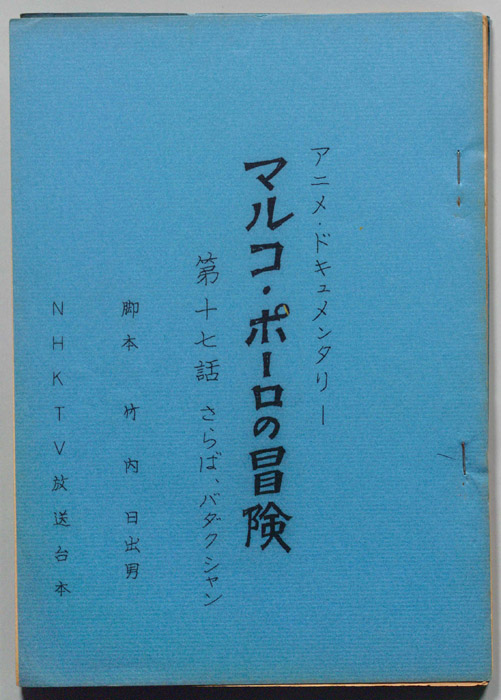 アニメ・ドキュメンタリー
マルコ・ポーロの冒険
第十七話 さらば、バダクシャン
脚本 竹内日出男
NHKTV放送台本